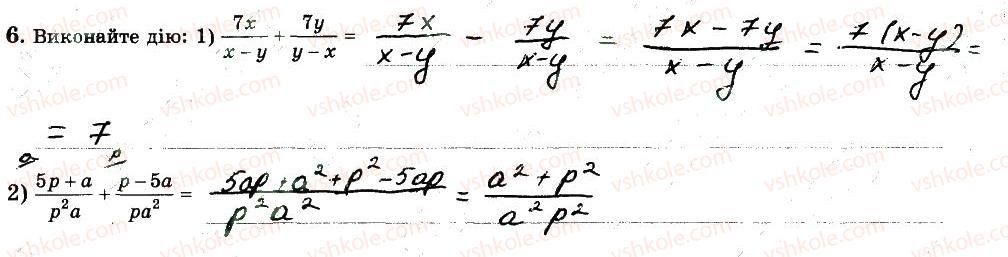 6. Виконайте дію: 1) 7x/(x−y) + 7y/(y−x) = 7x/(x−y) − 7y/(x−y) = (7x−7y)/(x−y) = 7(x−y)/(x−y) =
= 7
a p
2) (5p+a)/(p²a) + (p−5a)/(pa²) = (5ap+a²+p²−5ap)/(p²a²) = (a²+p²)/(a²p²)
vshkole.com